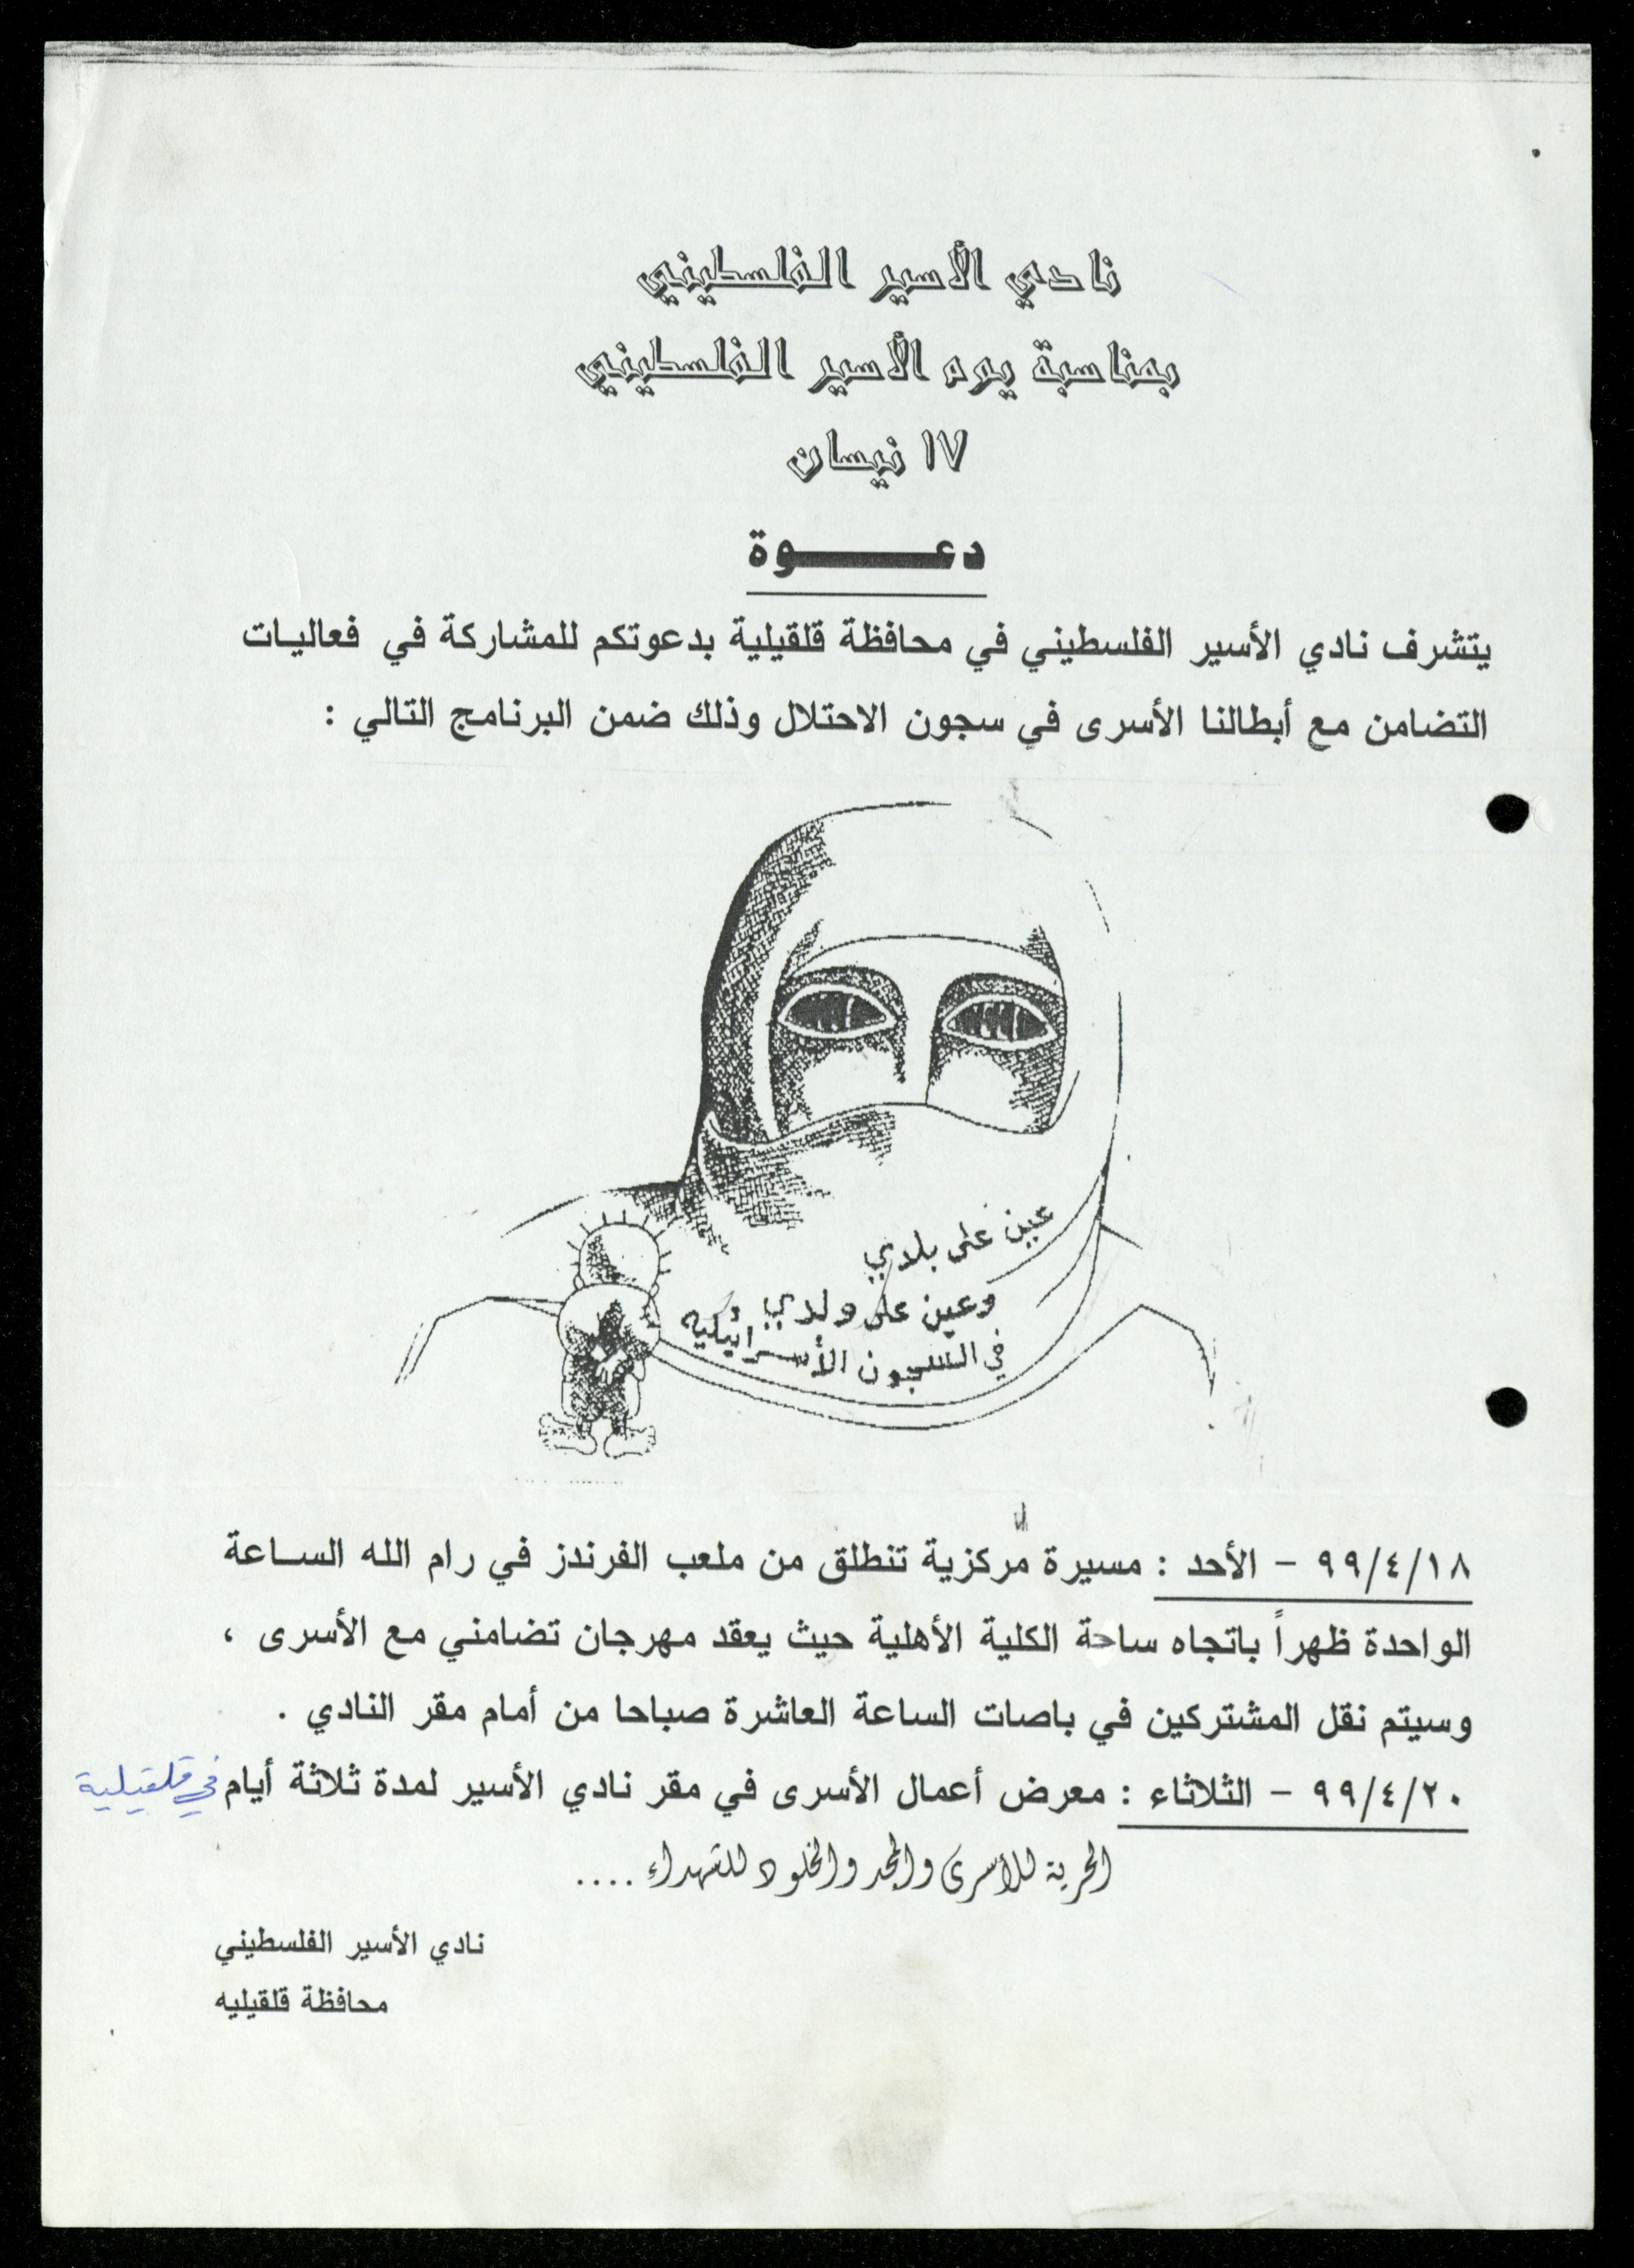 نادي الأسير الفلسطيني
بمناسبة يوم الأسير الفلسطيني
١٧ نيسان
دعـــــوة
يتشرف نادي الأسير الفلسطيني في محافظة قلقيلية بدعوتكم للمشاركة في فعاليات
التضامن مع أبطالنا الأسرى في سجون الاحتلال وذلك ضمن البرنامج التالي :
عين على بلدي
وعين على ولدي
في السجون الأسرائيليه
٩٩/٤/١٨ - الأحد : مسيرة مركزية تنطلق من ملعب الفرندز في رام الله الساعة
الواحدة ظهراً باتجاه ساحة الكلية الأهلية حيث يعقد مهرجان تضامني مع الأسرى ،
وسيتم نقل المشتركين في باصات الساعة العاشرة صباحا من أمام مقر النادي .
٩٩/٤/٢٠ - الثلاثاء : معرض أعمال الأسرى في مقر نادي الأسير لمدة ثلاثة أيام في قلقيلية
الحرية للأسرى والمجد والخلود للشهداء ....
نادي الأسير الفلسطيني
محافظة قلقيليه